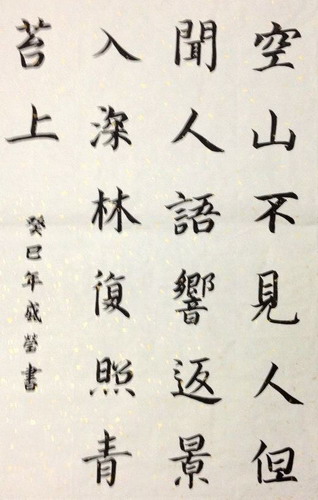 空山不見人但
聞人語響返景
入深林復照青
苔上
癸巳年盛莹書